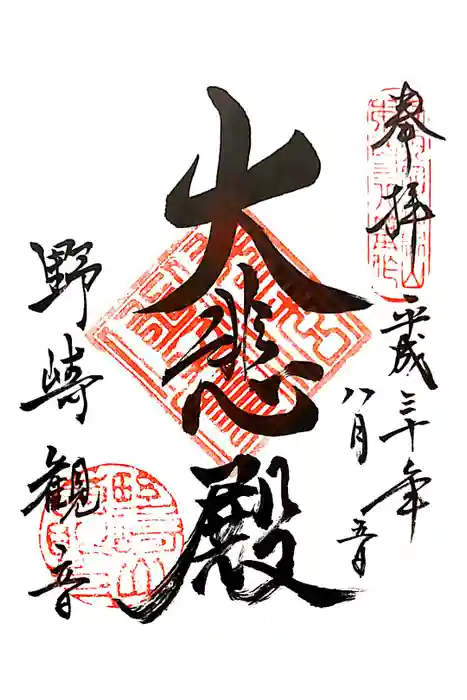 奉拝
平成三十年
八月五日
大悲殿
野崎観音